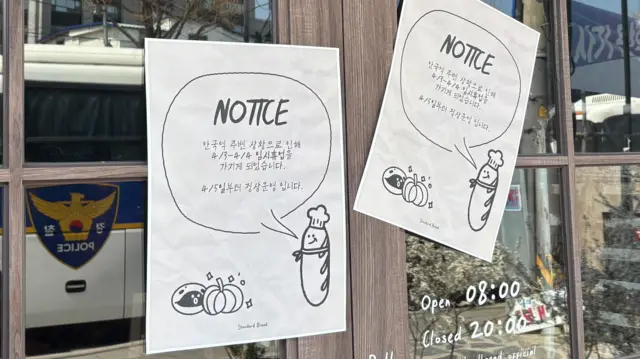 NOTICE
안국역 주변 상황으로 인해
4/3~4/4 임시휴업을
가기게 되었습니다.
4/5일부터 정상운영 입니다.
Standard Bread
NOTICE
안국역 주변 상황으로 인해
4/3~4/4 임시휴업을
가기게 되었습니다.
4/5일부터 정상운영 입니다.
Standard Bread
POLICE
Open 08:00
Closed 20:00
official